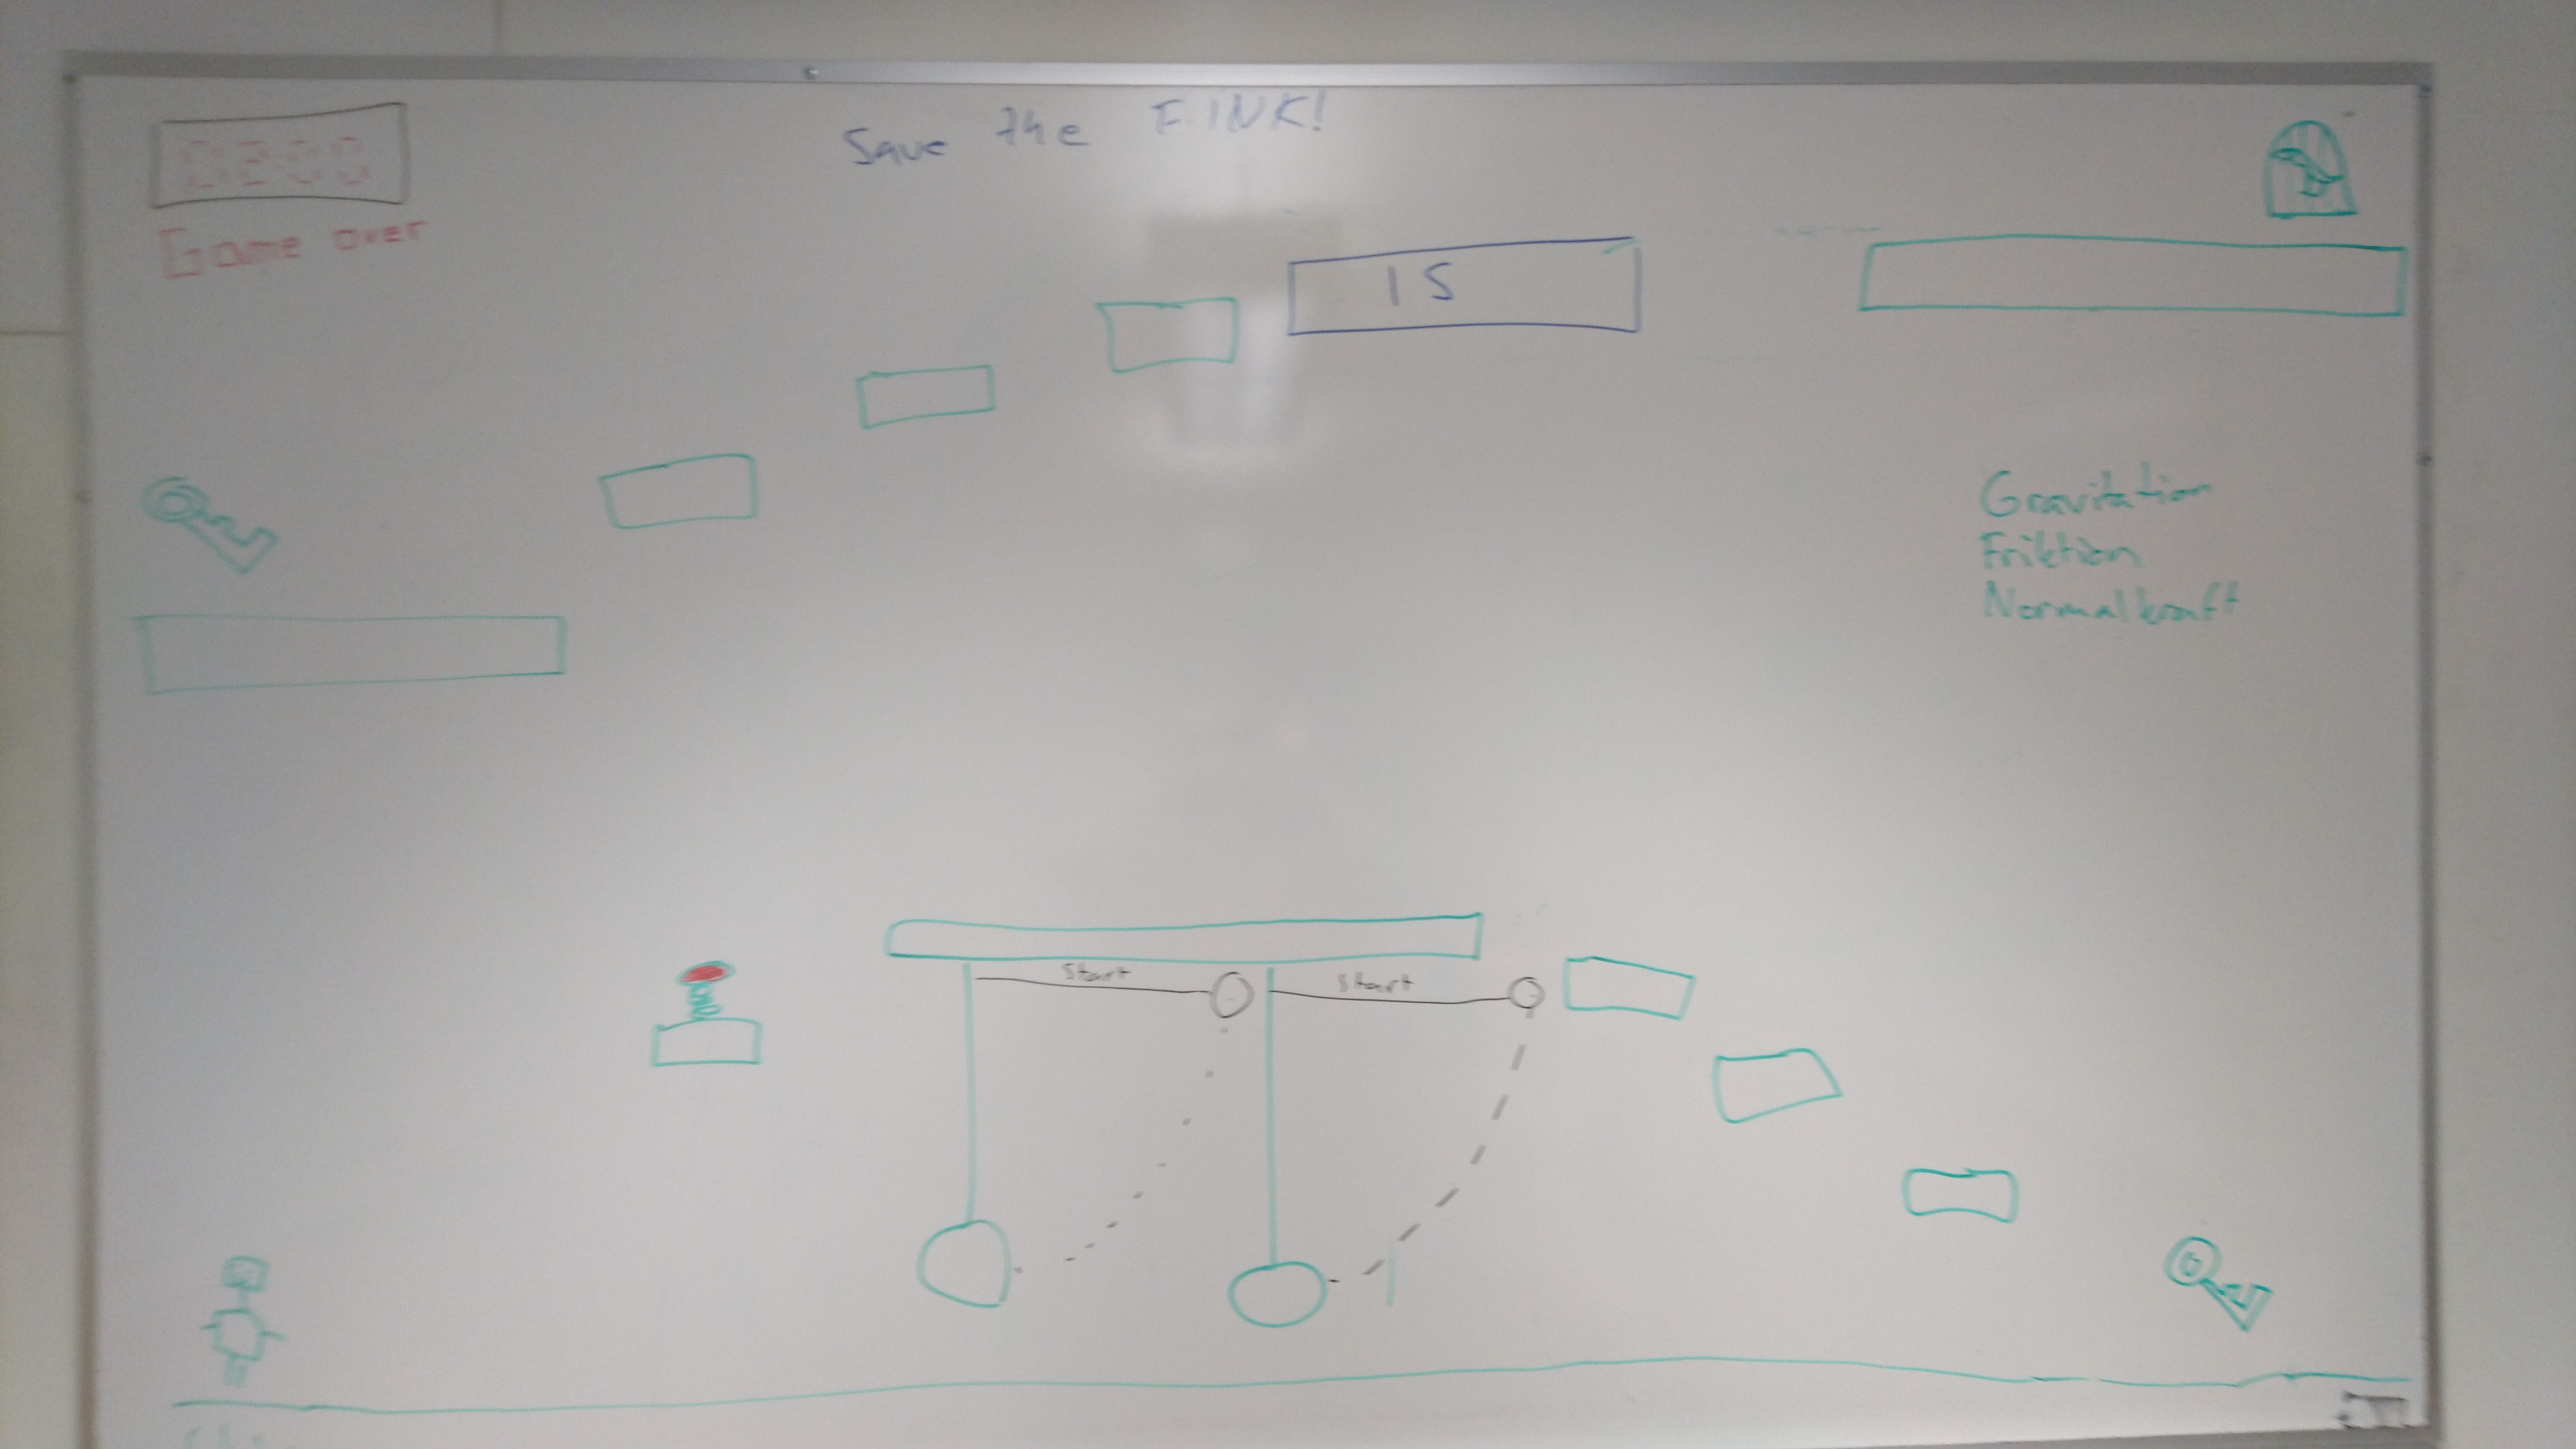 Save the FINK!
Game over
IS
Gravitation
Friktion
Normalkraft
Start
Start